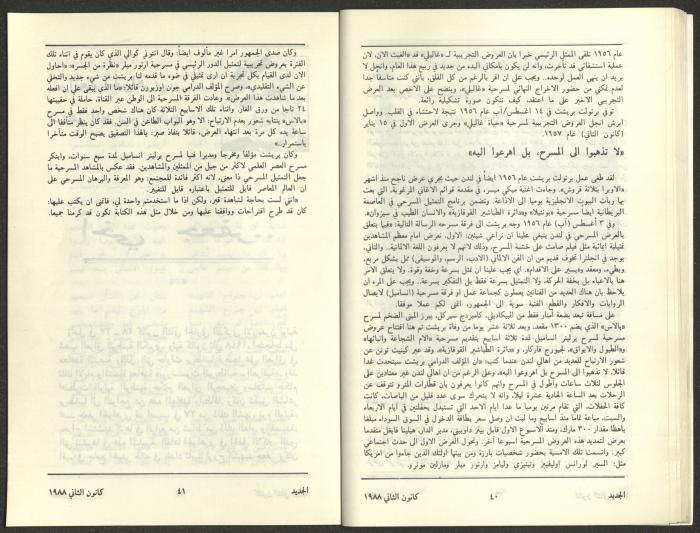 عام ١٩٥٦ تلقى الممثل الرئيسي خبرا بان العروض التجريبية لـ «غاليلي» قد «الغيت الان، لان
عملية استشفائي قد تأخرت، وانه لن يكون بامكاني البدء من جديد في ربيع هذا العام، وانجل لا
يريد ان ينهي العمل لوحده. ويجب علي ان اقر بالرغم من كل القلق، بأنني كنت متأسفا جدا
لعدم تمكني من حضور الاخراج النهائي لمسرحية «غاليلي»، ويتضح على الاخص بعد العرض
التجريبي الاخير على ما اعتقد، كيف تتكون صورة تشكيلية رائعة.
توفي برتولت بريشت في ١٤ اغسطس/آب عام ١٩٥٦ نتيجة لاحتشاء في القلب. وواصل
ايرش انجل العروض التجريبية لمسرحية «حياة غاليلي» وجرى العرض الاول في ١٥ يناير
(كانون الثاني) عام ١٩٥٧.
«لا تذهبوا الى المسرح، بل اهرعوا اليه»
لقد طغى عمل برتولت بريشت عام ١٩٥٦ ايضاً في لندن حيث يجري عرض ناجح منذ اشهر
«لاوبرا بثلاثة قروش»، وجاءت اغنية ميكي ميسر، في مقدمة قوائم الاغاني المرغوبة، التي بعث
بها ربات البيوت الانجليزية يوميا الى الاذاعة. وتضمن برنامج التمثيل المسرحي في العاصمة
البريطانية ايضا مسرحية «بونتيلا» و«دائرة الطباشير القوقازية» والانسان الطيب في سيزوان».
وفي ٣ اغسطس (آب) عام ١٩٥٦ وجه بريشت الى فرقة مسرحه الرسالة التالية: «فيما يتعلق
بالعرض المسرحي في لندن ينبغي علينا ان نراعي شيئين: الاول، نعرض امام معظم المشاهدين
تمثيلية ايمائية مثل فيلم صامت على خشبة المسرح، وذلك لانهم لا يعرفون اللغة الالمانية. والثاني،
يوجد في انجلترا تخوف قديم من ان الفن الالماني (الادب، الرسم، والموسيقى) ممل بشكل مريع،
وبطيء، ومعقد «ويسير على الاقدام». اي يجب علينا ان نمثل بسرعة وخفة وقوة. ولا يتعلق الامر
هنا بالاعباء بل بخفة الحركة، ولا التمثيل بسرعة فقط بل التفكير بسرعة.. ويجب على المرء ان
يلاحظ بان هناك العديد من الفنانين يعملون كجماعة عمل او فرقة مسرحية (انسامبل) لايصال
الروايات والافكار والقطع الفنية سوية الى الجمهور، اتمنى لكم عملا موفقا.
على مسافة تبعد بضعة أمتار فقط من البيكاديلي، كامبردج سيركل، يبرز المبنى الضخم لمسرح
«بالاس» الذي يضم ١٣٠٠ مقعد. وبعد ثلاثة عشر يوما من وفاة بريشت تم هنا افتتاح عروض
مسرحية لمسرح برلينر انسامبل لمدة ثلاثة اسابيع بتقديم مسرحية «الام الشجاعة وابنائها»
و«الطبول والابواق»، لجيورج فاركار، و«دائرة الطباشير القوقازية». وقد عبر كينيث تونن عن
شعور الارتياح للعديد من اهالي لندن عندما كتب: «ان المؤلف الدرامي بريشت سيتحدث غدا
قائلا: لا تذهبوا الى المسرح بل اهرعوا اليه»، وعلى الرغم من ان اهالي لندن غير معتادين على
الجلوس لثلاث ساعات وأطول في المسرح وانهم كانوا يعرفون بان قطارات المترو تتوقف عن
الرحلات بعد الساعة الحادية عشرة ليلا، وانه لا يتحرك سوى عدد قليل من الباصات، كانت
كافة الحفلات، التي تقام مرتين يوميا ما عدا ايام الاحد التي تستبدل بحفلتين في ايام الاربعاء
والسبت، مباعة تماما منذ اسابيع وما لبث ان وصل سعر بطاقة الدخول في السوق السوداء مبلغا
باهظا مقدار ٣٠٠ مارك. ومنذ الاسبوع الاول قابل بيتر داوبيني، مدير الدار، هيلينا فايغل متقدما
بعرض لتمديد هذه العروض المسرحية اسبوعا آخر. وتحول العرض الاول الى حدث اجتماعي
كبير. واتسمت تلك الامسية بحضور شخصيات بارزة ومن بينها اولئك الذين جاءوا من امريكا
مثل: السير لورانس اوليفيير وتينيزي وليامز وارثور ميلر ومارلين مونرو.
الجديد
٤٠
كانون الثاني ١٩٨٨
وكان صدى الجمهور امرا غير مألوف ايضاً: وقال انتوني كوالي الذي كان يقوم في اثناء تلك
الفترة بعروض تجريبية لتمثيل الدور الرئيسي في مسرحية ارثور ميلر «نظرة من الجسر»: «احاول
الان لدى القيام بكل تجربة ان ارى تمثيلي في ضوء ما قدمه لنا بريشت من شيء جديد والتخلي
عن الشيء التقليدي»، وصرح المؤلف الدرامي جون اوزبورن قائلا: «ما الذي يبقى علي ان افعله
بعد ما شاهدت هذا العرض». وعادت الفرقة المسرحية الى الوطن عبر القناة، حاملة في حقيبتها
٢٤ تاجا من ورق الغار. واثناء تلك الاسابيع الثلاثة كان هناك شخص واحد فقط في مسرح
«بالاس» ينتابه شعور بعدم الارتياح: الا وهو البواب الطاعن في السن. فقد كان ينظر متأففا الى
ساعة يده كل مرة بعد انتهاء العرض، قائلا بنفاذ صبر: بالهذا التصفيق يصبح الوقت متأخرا
باستمرار.»
وكان بريشت مؤلفا ومخرجا ومديرا فنيا لمسرح برلينر انسامبل لمدة سبع سنوات، وابتكر
مسرح العصر العلمي لاكثر من جيل من الممثلين والمشاهدين. فقد عكس بالمشاهد المسرحية ما
جعل التمثيل المسرحي ذا معنى، لانه اكثر فائدة للمجتمع: وهو المعرفة والبرهان المسرحي على
ان العالم المعاصر قابل للتمثيل باعتباره قابل للتغيير.
«انني لست بحاجة لشاهدة قبر، ولكن اذا ما استخدمتم واحدة لي، فاتمنى ان يكتب عليها:
كان قد طرح اقتراحات ووافقنا عليها ومن خلال مثل هذه الكتابة نكون قد كرمنا جميعا.
الجديد
٤١
كانون الثاني ١٩٨٨